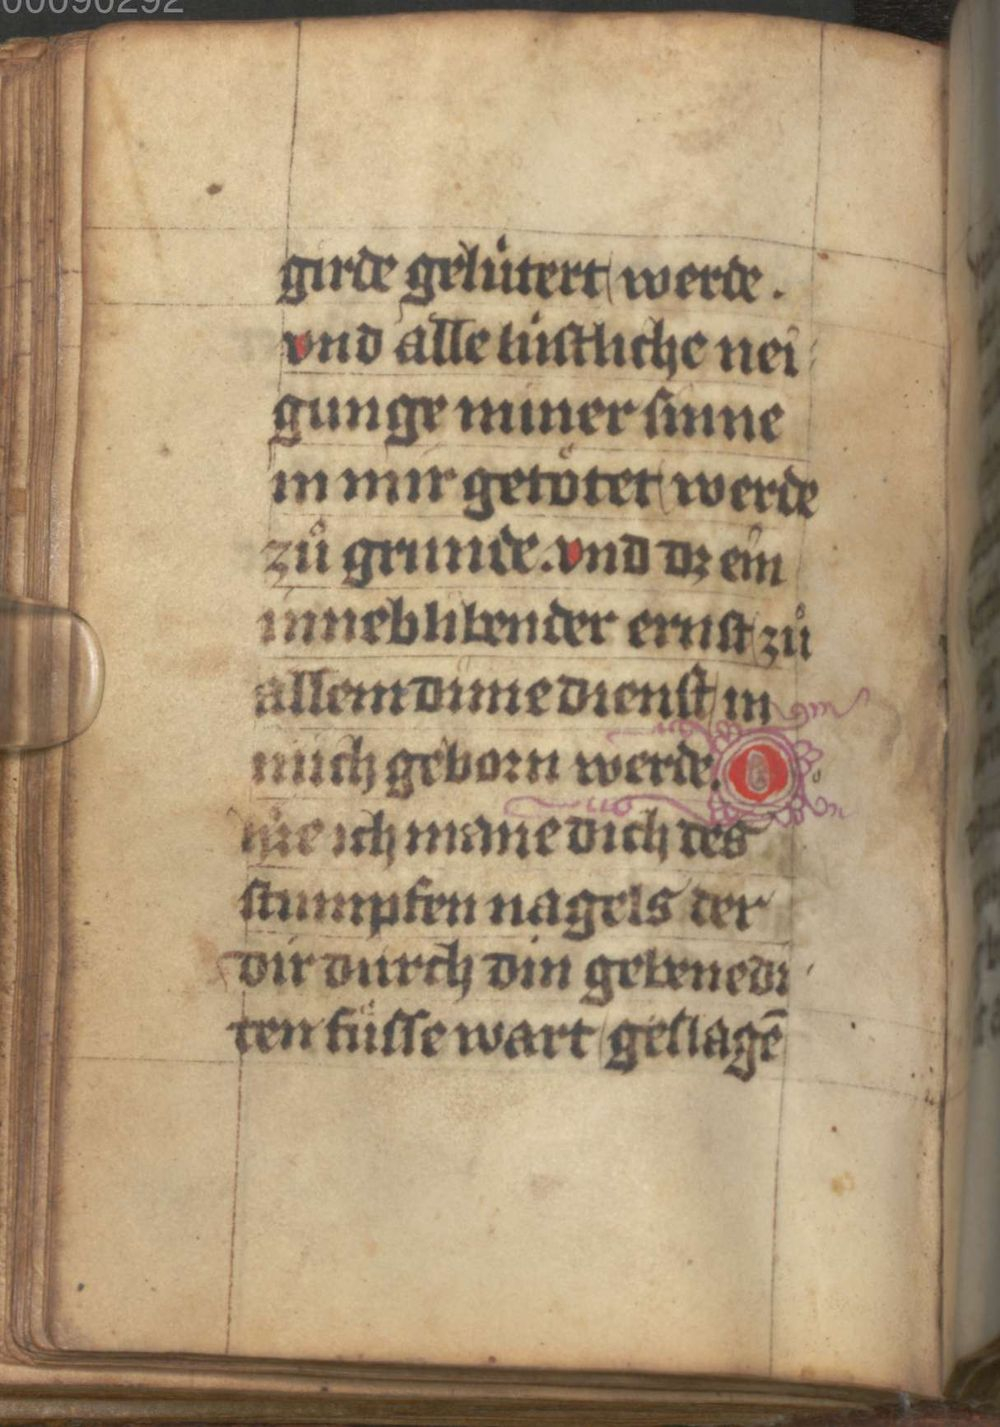 girde gelütert werde.
vnd alle lustliche nei
gunge miner sinne
in mir getötet werde
zů grunde. vnd dz ein
inneblibender ernst zů
allem dime dienst in
mich geborn werde. O
ich mane dich des
stumpfen nagels der
dir durch din gebenedi
ten füsse wart geslagē